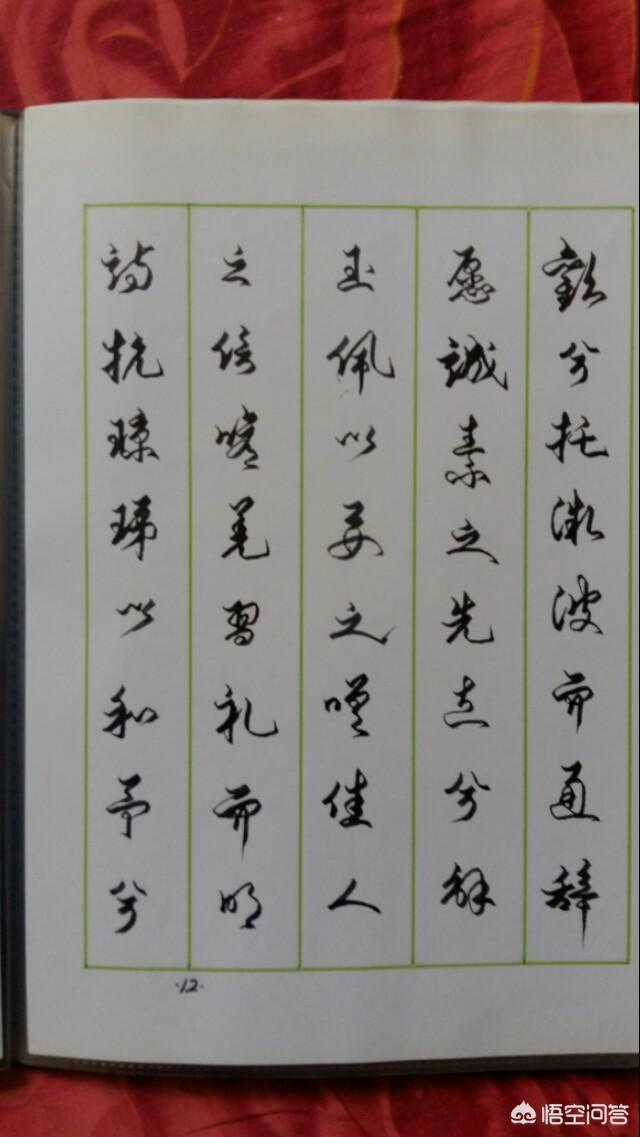 歡兮托微波而通辞
愿誠素之先達兮解
玉佩以要之嗟佳人
之信脩羌習礼而明
詩抗瓊珶以和予兮
·12·
悟空问答